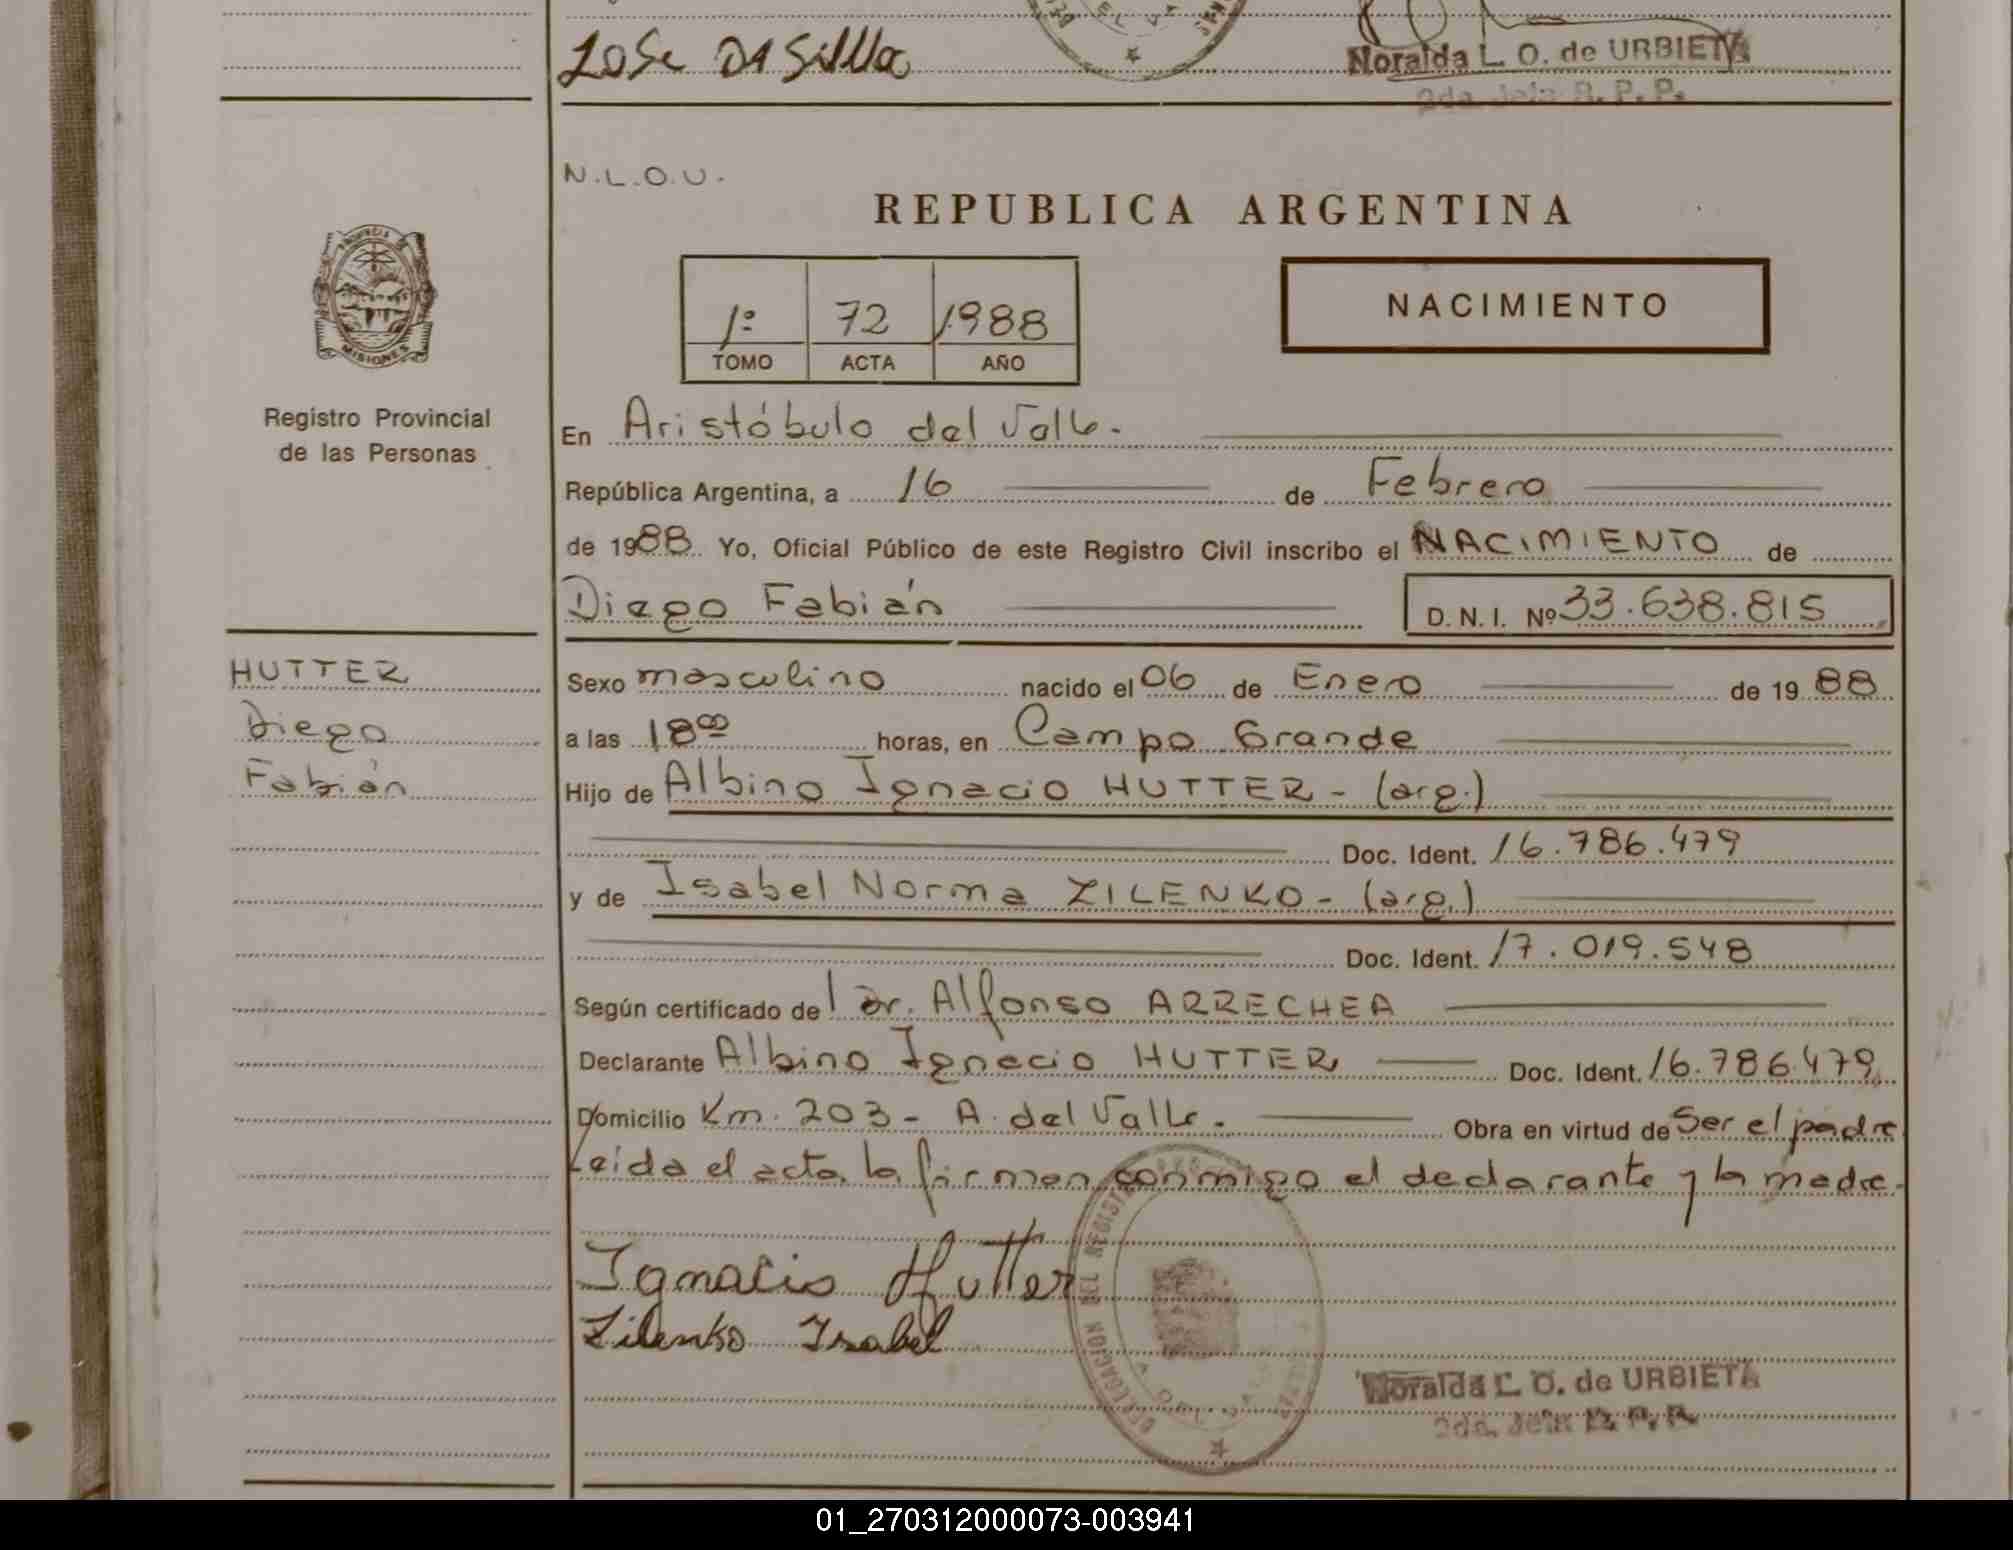 Jose Da Silva
Noralda L. O. de URBIETA
2da. Jefa R. P. P.
N.L.O.U.
REPUBLICA ARGENTINA
PROVINCIA DE
MISIONES
1º 72 1988
TOMO ACTA AÑO
NACIMIENTO
Registro Provincial
de las Personas
En Aristóbulo del Valle.
República Argentina, a 16 de Febrero
de 1988 Yo, Oficial Público de este Registro Civil inscribo el NACIMIENTO de
Diego Fabián D. N. I. Nº 33.638.815
HUTTER
Diego
Fabián
Sexo masculino nacido el 06 de Enero de 1988
a las 18⁰⁰ horas, en Campo Grande
Hijo de Albino Ignacio HUTTER - (arg.)
Doc. Ident. 16.786.479
y de Isabel Norma ZILENKO - (arg.)
Doc. Ident. 17.019.548
Según certificado del dr. Alfonso ARRECHEA
Declarante Albino Ignacio HUTTER Doc. Ident. 16.786.479
Domicilio Km. 203 - A. del Valle. Obra en virtud de Ser el padre
Leida el acta, la firman conmigo el declarante y la madre.
Ignacio Hutter
Zilenko Isabel
DELEGACION DEL REGISTRO
Noralda L. O. de URBIETA
2da. Jefa R. P. P.
01_270312000073-003941